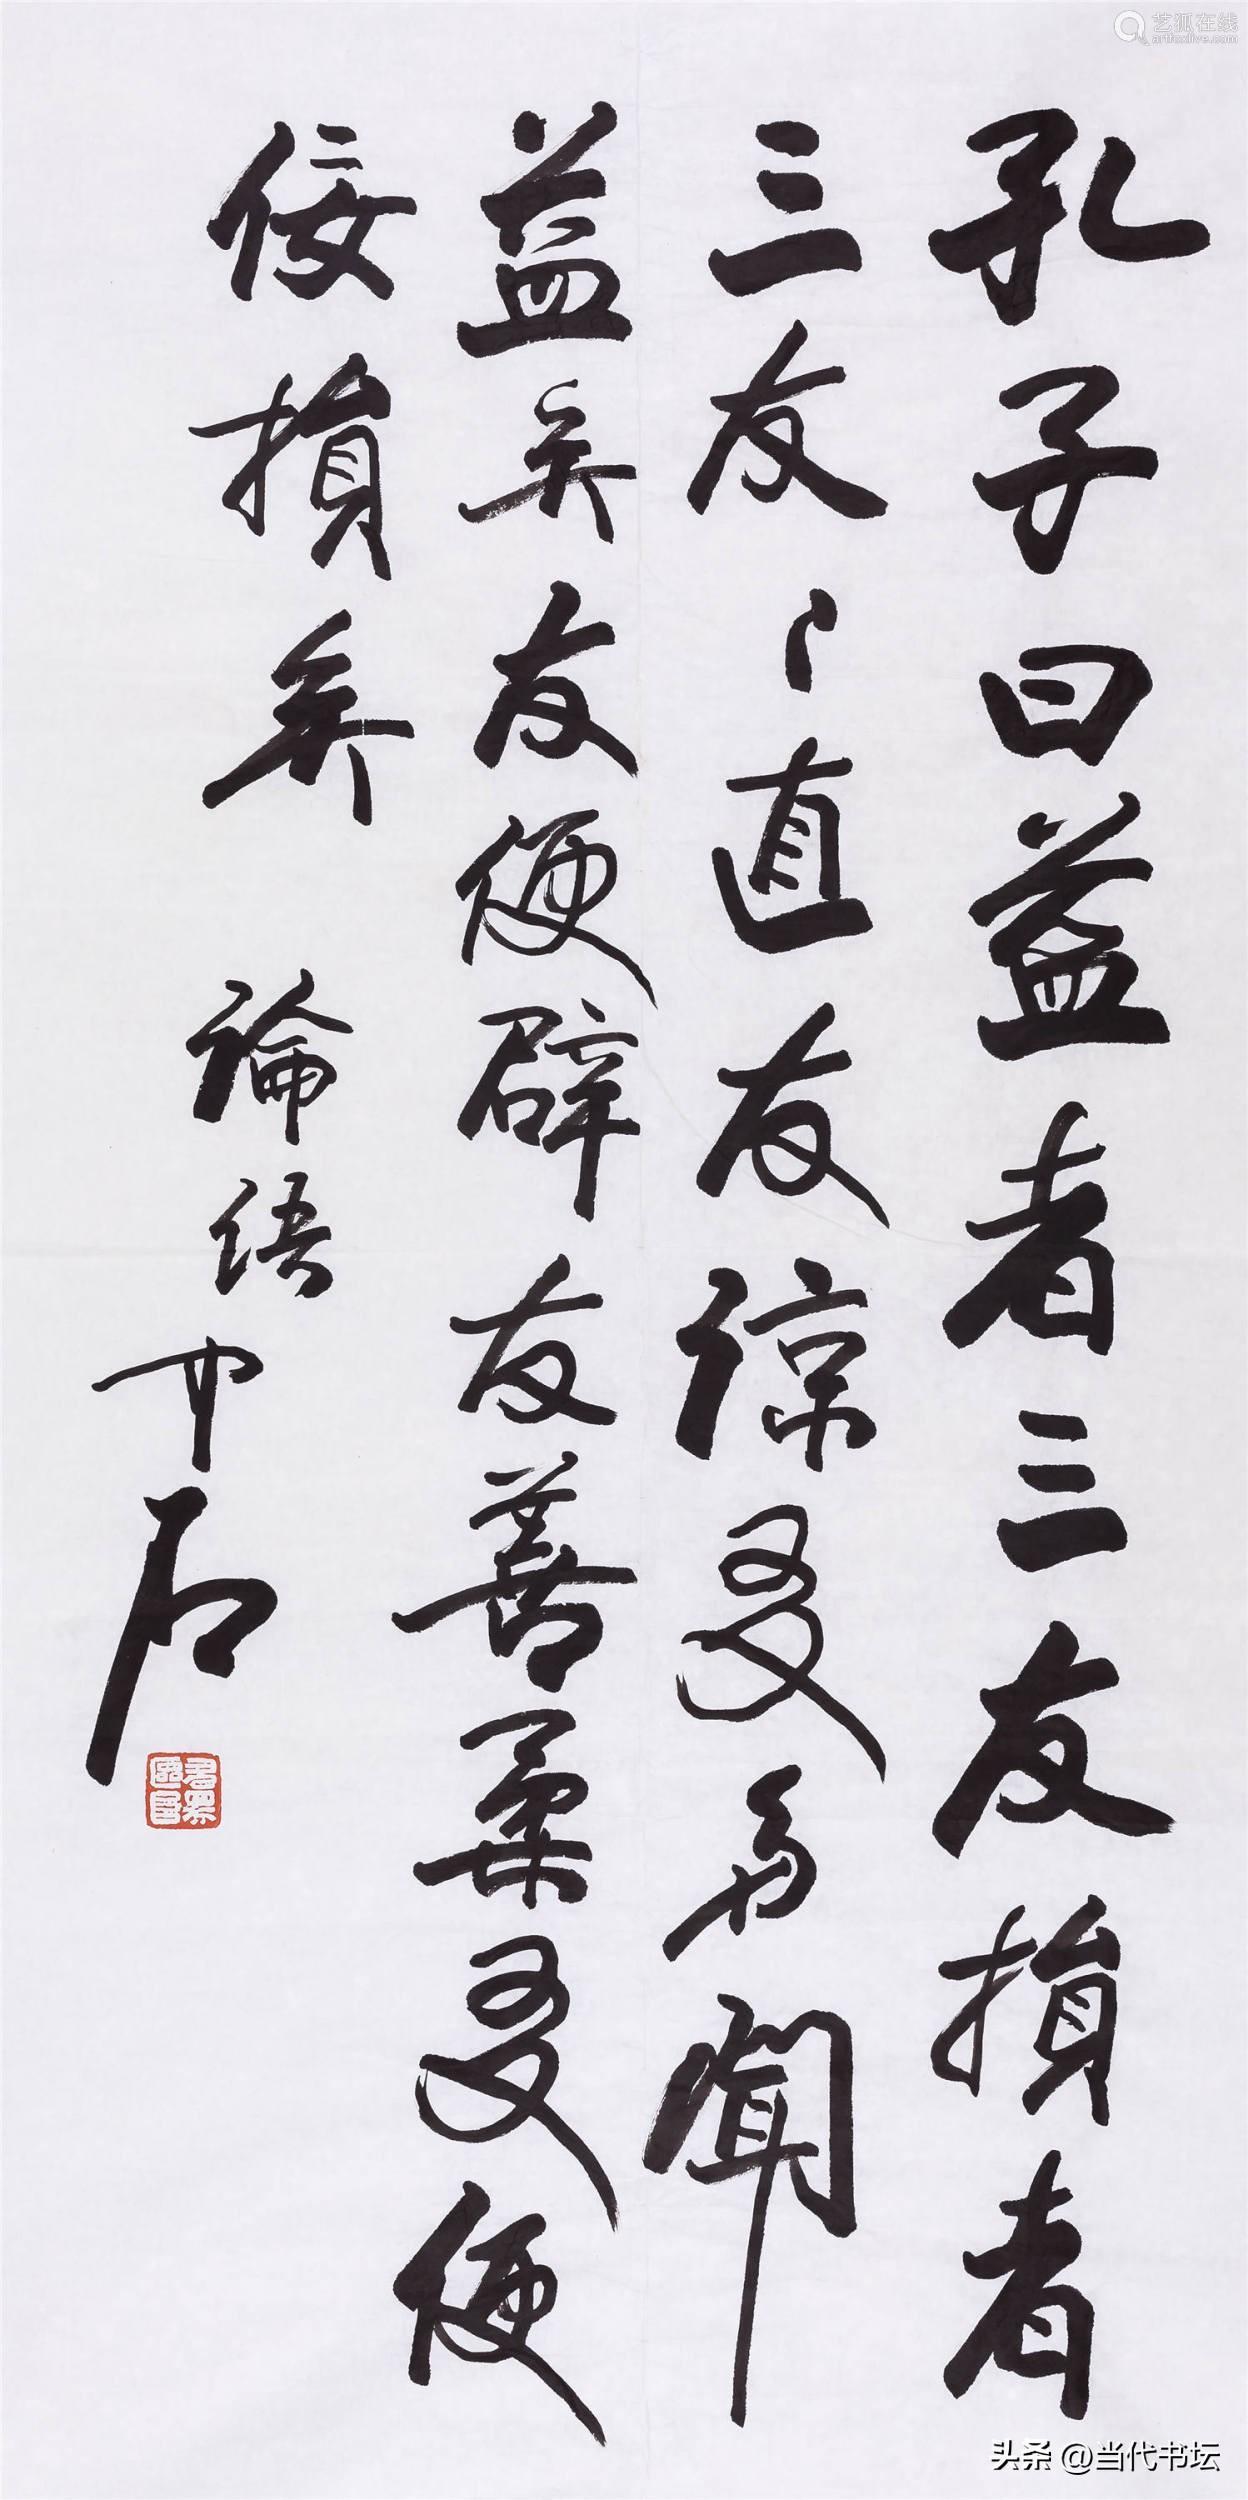 艺狐在线
artfoxlive.com
孔子曰益者三友損者
三友〻直友諒友多聞
益矣友便辟友善柔友便
佞損矣 論語 中石
头条 @当代书坛